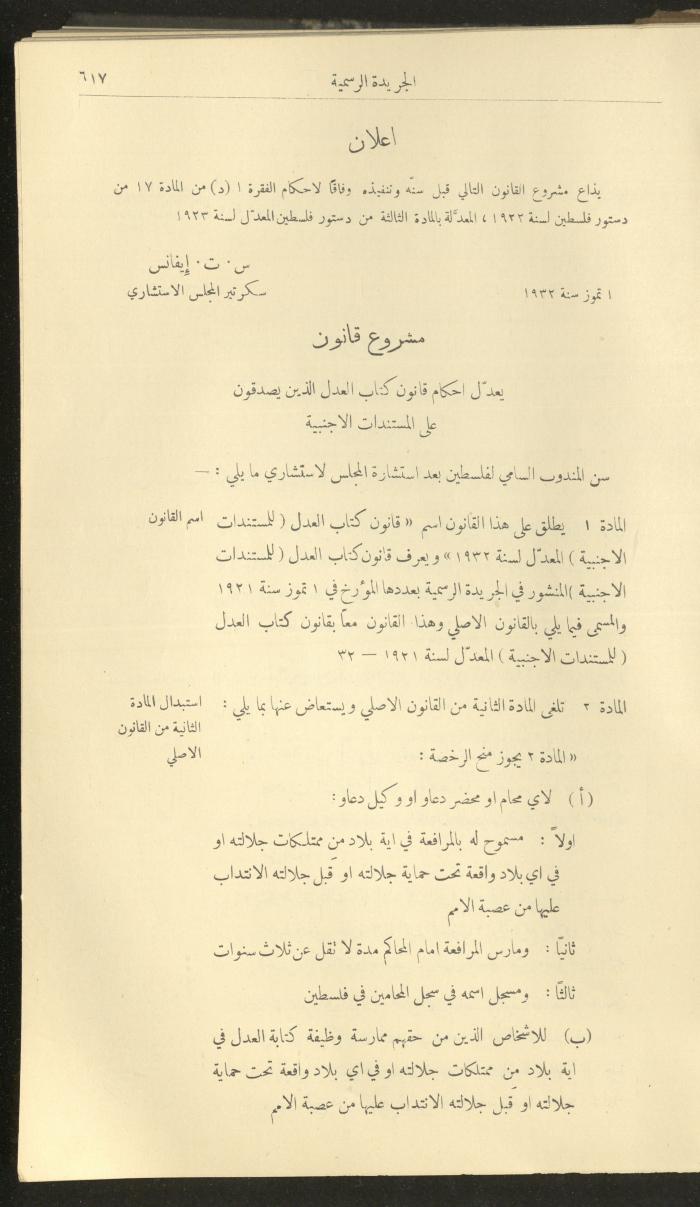 الجريدة الرسمية
٦١٧
اعلان
يذاع مشروع القانون التالي قبل سنّه وتنفيذه وفاقًا لاحكام الفقرة ١ (د) من المادة ١٧ من
دستور فلسطين لسنة ١٩٢٢، المعدَّلة بالمادة الثالثة من دستور فلسطين المعدّل لسنة ١٩٢٣
س٠ ت٠ إيفانس
١ تموز سنة ١٩٣٢
سكرتير المجلس الاستشاري
مشروع قانون
يعدّل احكام قانون كتاب العدل الذين يصدقون
على المستندات الاجنبية
سن المندوب السامي لفلسطين بعد استشارة المجلس لاستشاري ما يلي : —
المادة ١ يطلق على هذا القانون اسم « قانون كتاب العدل ( للمستندات
اسم القانون
الاجنبية ) المعدّل لسنة ١٩٣٢ » ويعرف قانون كتاب العدل ( للمستندات
الاجنبية )المنشور في الجريدة الرسمية بعددها المؤرخ في ١ تموز سنة ١٩٢١
والمسمى فيما يلي بالقانون الاصلي وهذا القانون معًا بقانون كتاب العدل
( للمستندات الاجنبية ) المعدّل لسنة ١٩٢١ — ٣٢
المادة ٢ تلغى المادة الثانية من القانون الاصلي ويستعاض عنها بما يلي :
استبدال المادة
الثانية من القانون
الاصلي
« المادة ٢ يجوز منح الرخصة :
(أ) لاي محام او محضر دعاو او وكيل دعاو:
اولاً : مسموح له بالمرافعة في اية بلاد من ممتلكات جلالته او
في اي بلاد واقعة تحت حماية جلالته او قَبل جلالته الانتداب
عليها من عصبة الامم
ثانيًا : ومارس المرافعة امام المحاكم مدة لا تقل عن ثلاث سنوات
ثالثًا : ومسجل اسمه في سجل المحامين في فلسطين
(ب) للاشخاص الذين من حقهم ممارسة وظيفة كتابة العدل في
اية بلاد من ممتلكات جلالته او في اي بلاد واقعة تحت حماية
جلالته او قَبل جلالته الانتداب عليها من عصبة الامم